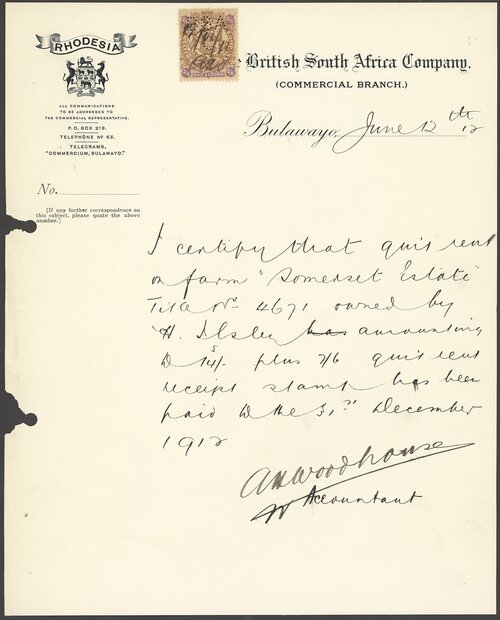 RHODESIA
ALL COMMUNICATIONS
TO BE ADDRESSED TO
THE COMMERCIAL REPRESENTATIVE.
P.O. BOX 219.
TELEPHONE Nº 63.
TELEGRAMS,
"COMMERCIUM, BULAWAYO."
No.
[If any further correspondence on
this subject, please quote the above
number.]
2/6 HALF A CROWN 2/6
British South Africa Company.
(COMMERCIAL BRANCH.)
Bulawayo, June 12th 12
I certify that quit rent
on farm "Somerset Estate"
Title No 4671 owned by
H. Ilsley has amounting
to 14/- plus 2/6 quit rent
receipt stamp has been
paid to the 31st December
1912
Woodhouse
Accountant